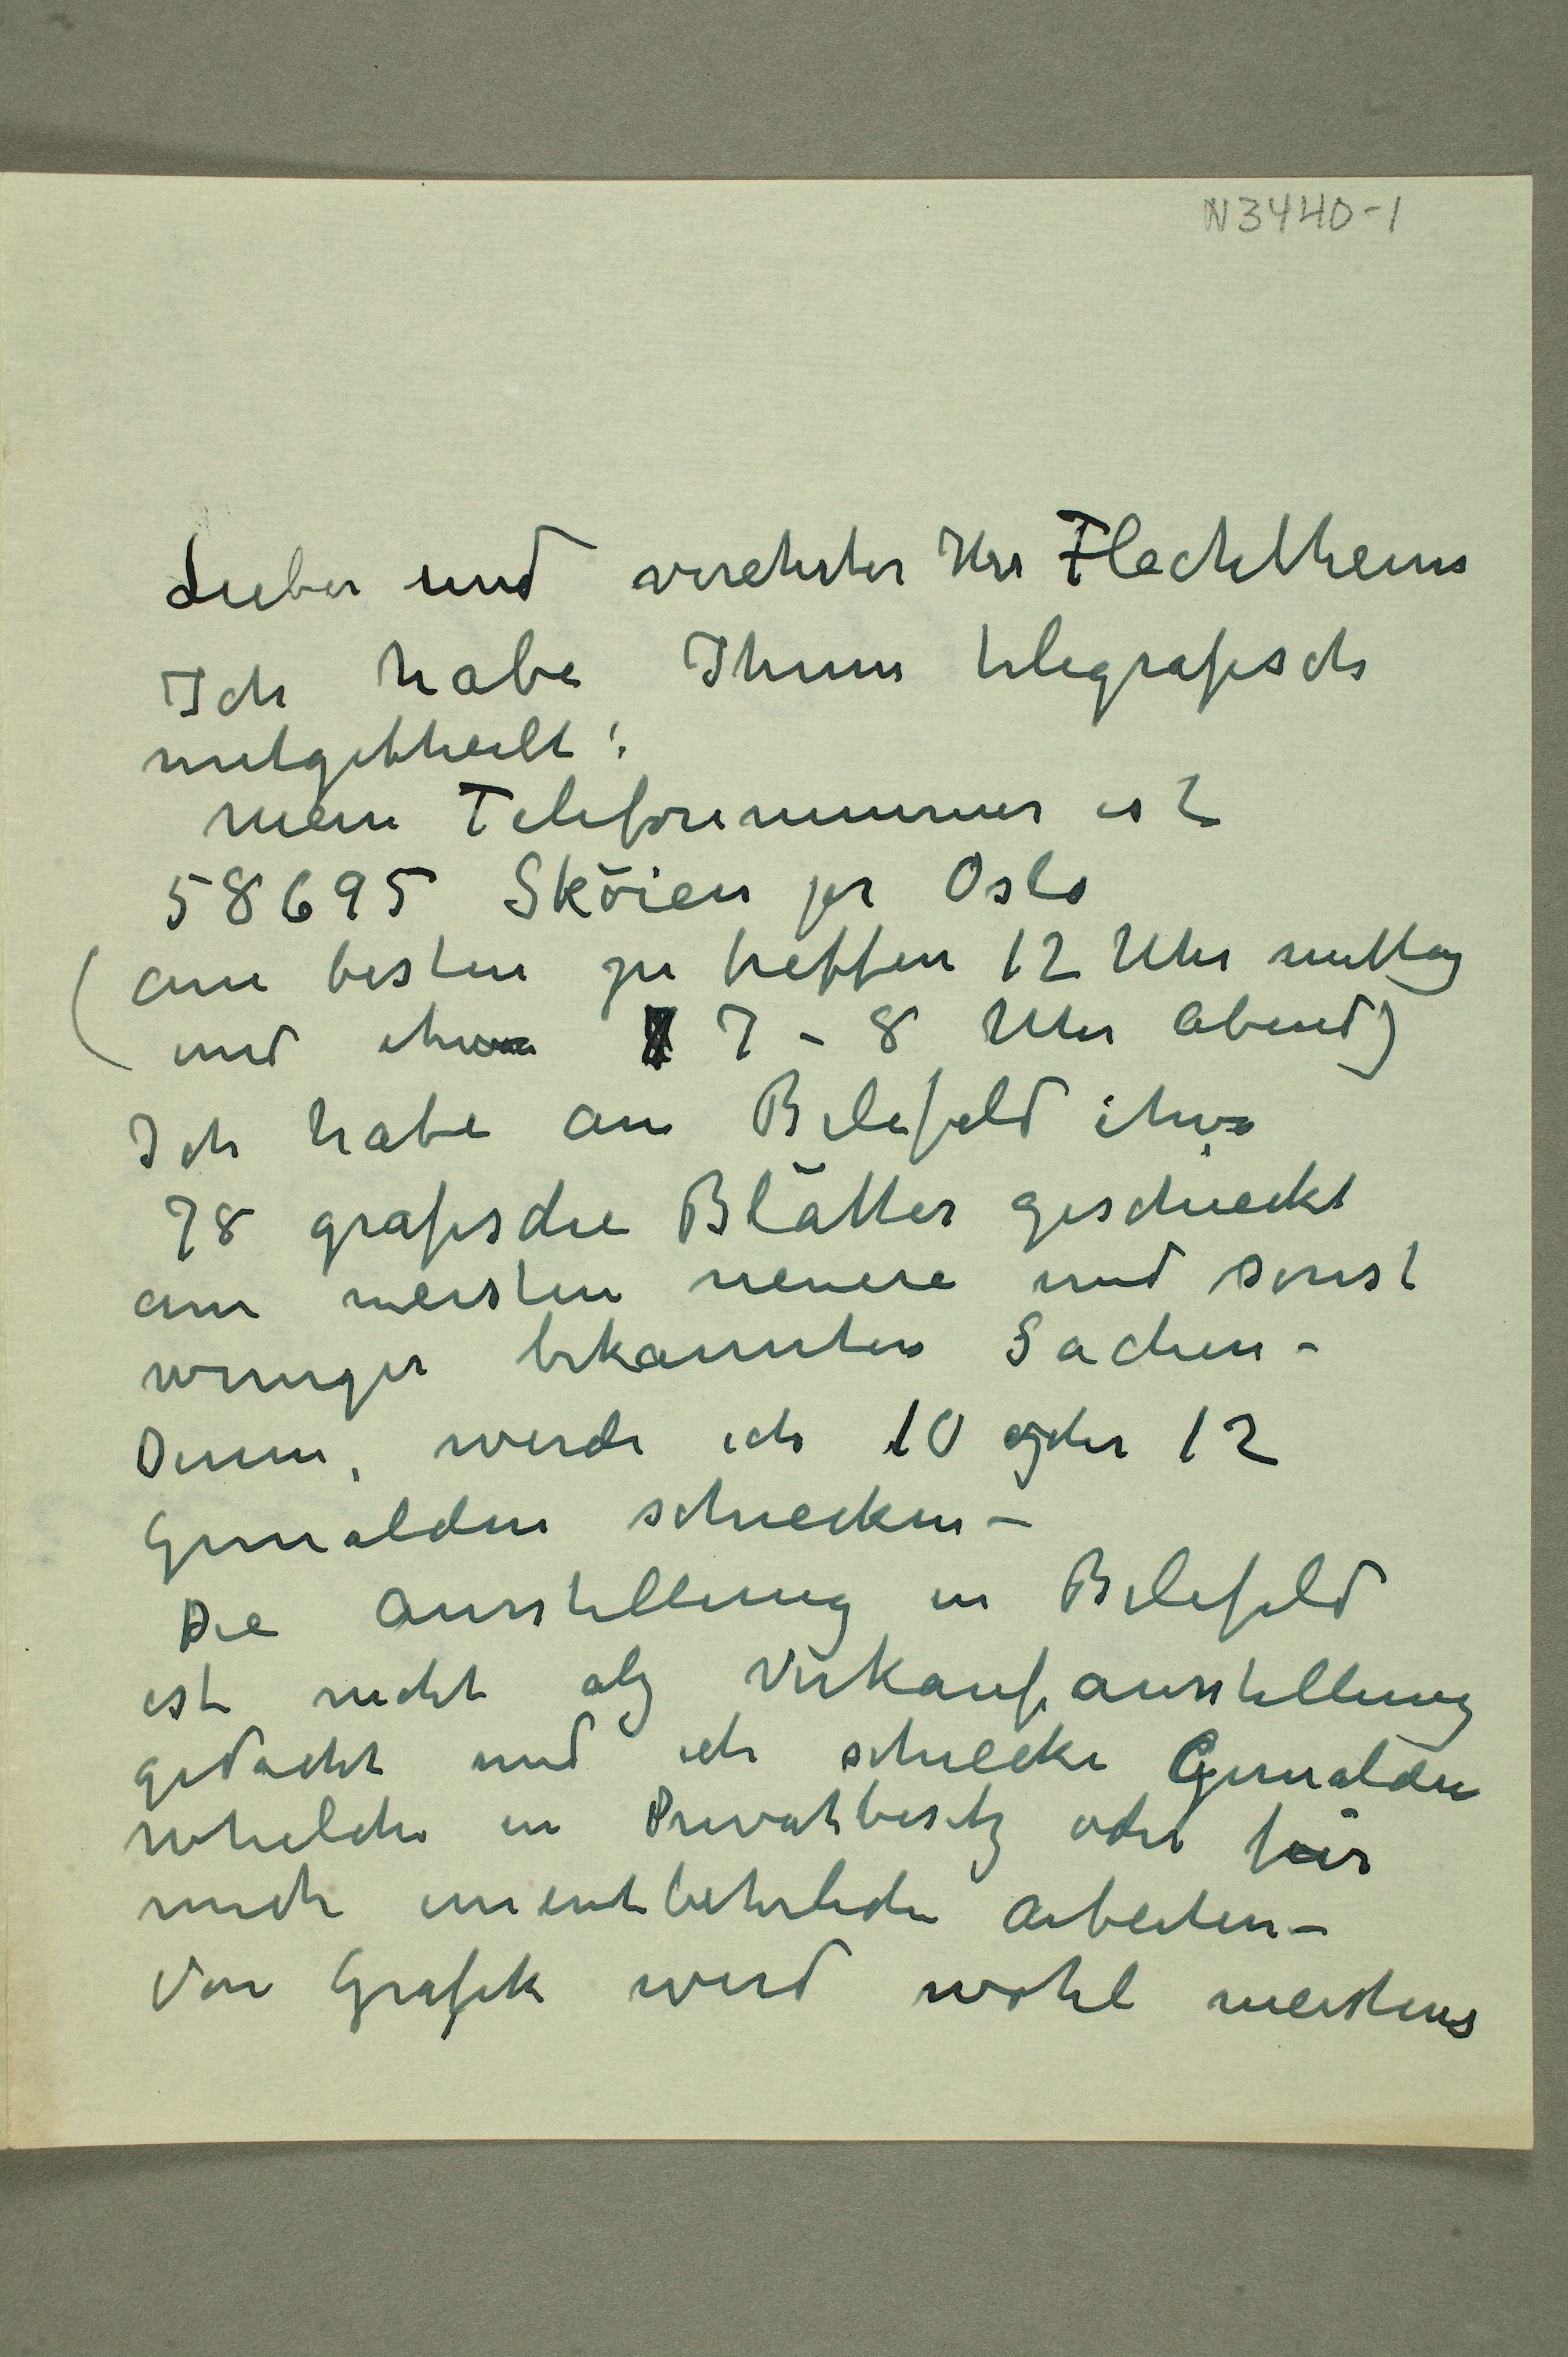 N 3440-1
Lieber und verehrter Herr Flechtheim
Ich habe Ihnen telegrafisch
mitgetheilt:
mein Telefonnummer ist
58695 Sköien pr Oslo
(am besten zu treffen 12 Uhr mittag
und etwa 7 – 8 Uhr abend)
Ich habe an Bilefeld etwa
78 grafische Blätter geschieckt
am meisten neuere und sonst
weniger bekannten Sachen –
Denn, werde ich 10 oder 12
Gemälden schiecken –
Die Ausstellung in Bilefeld
ist nicht als Verkaufausstellung
gedacht und ich schiecke Gemälden
whelche in Privatbesitz oder für
mich unentbehrliche Arbeiten –
Von Grafik wird wohl meistens